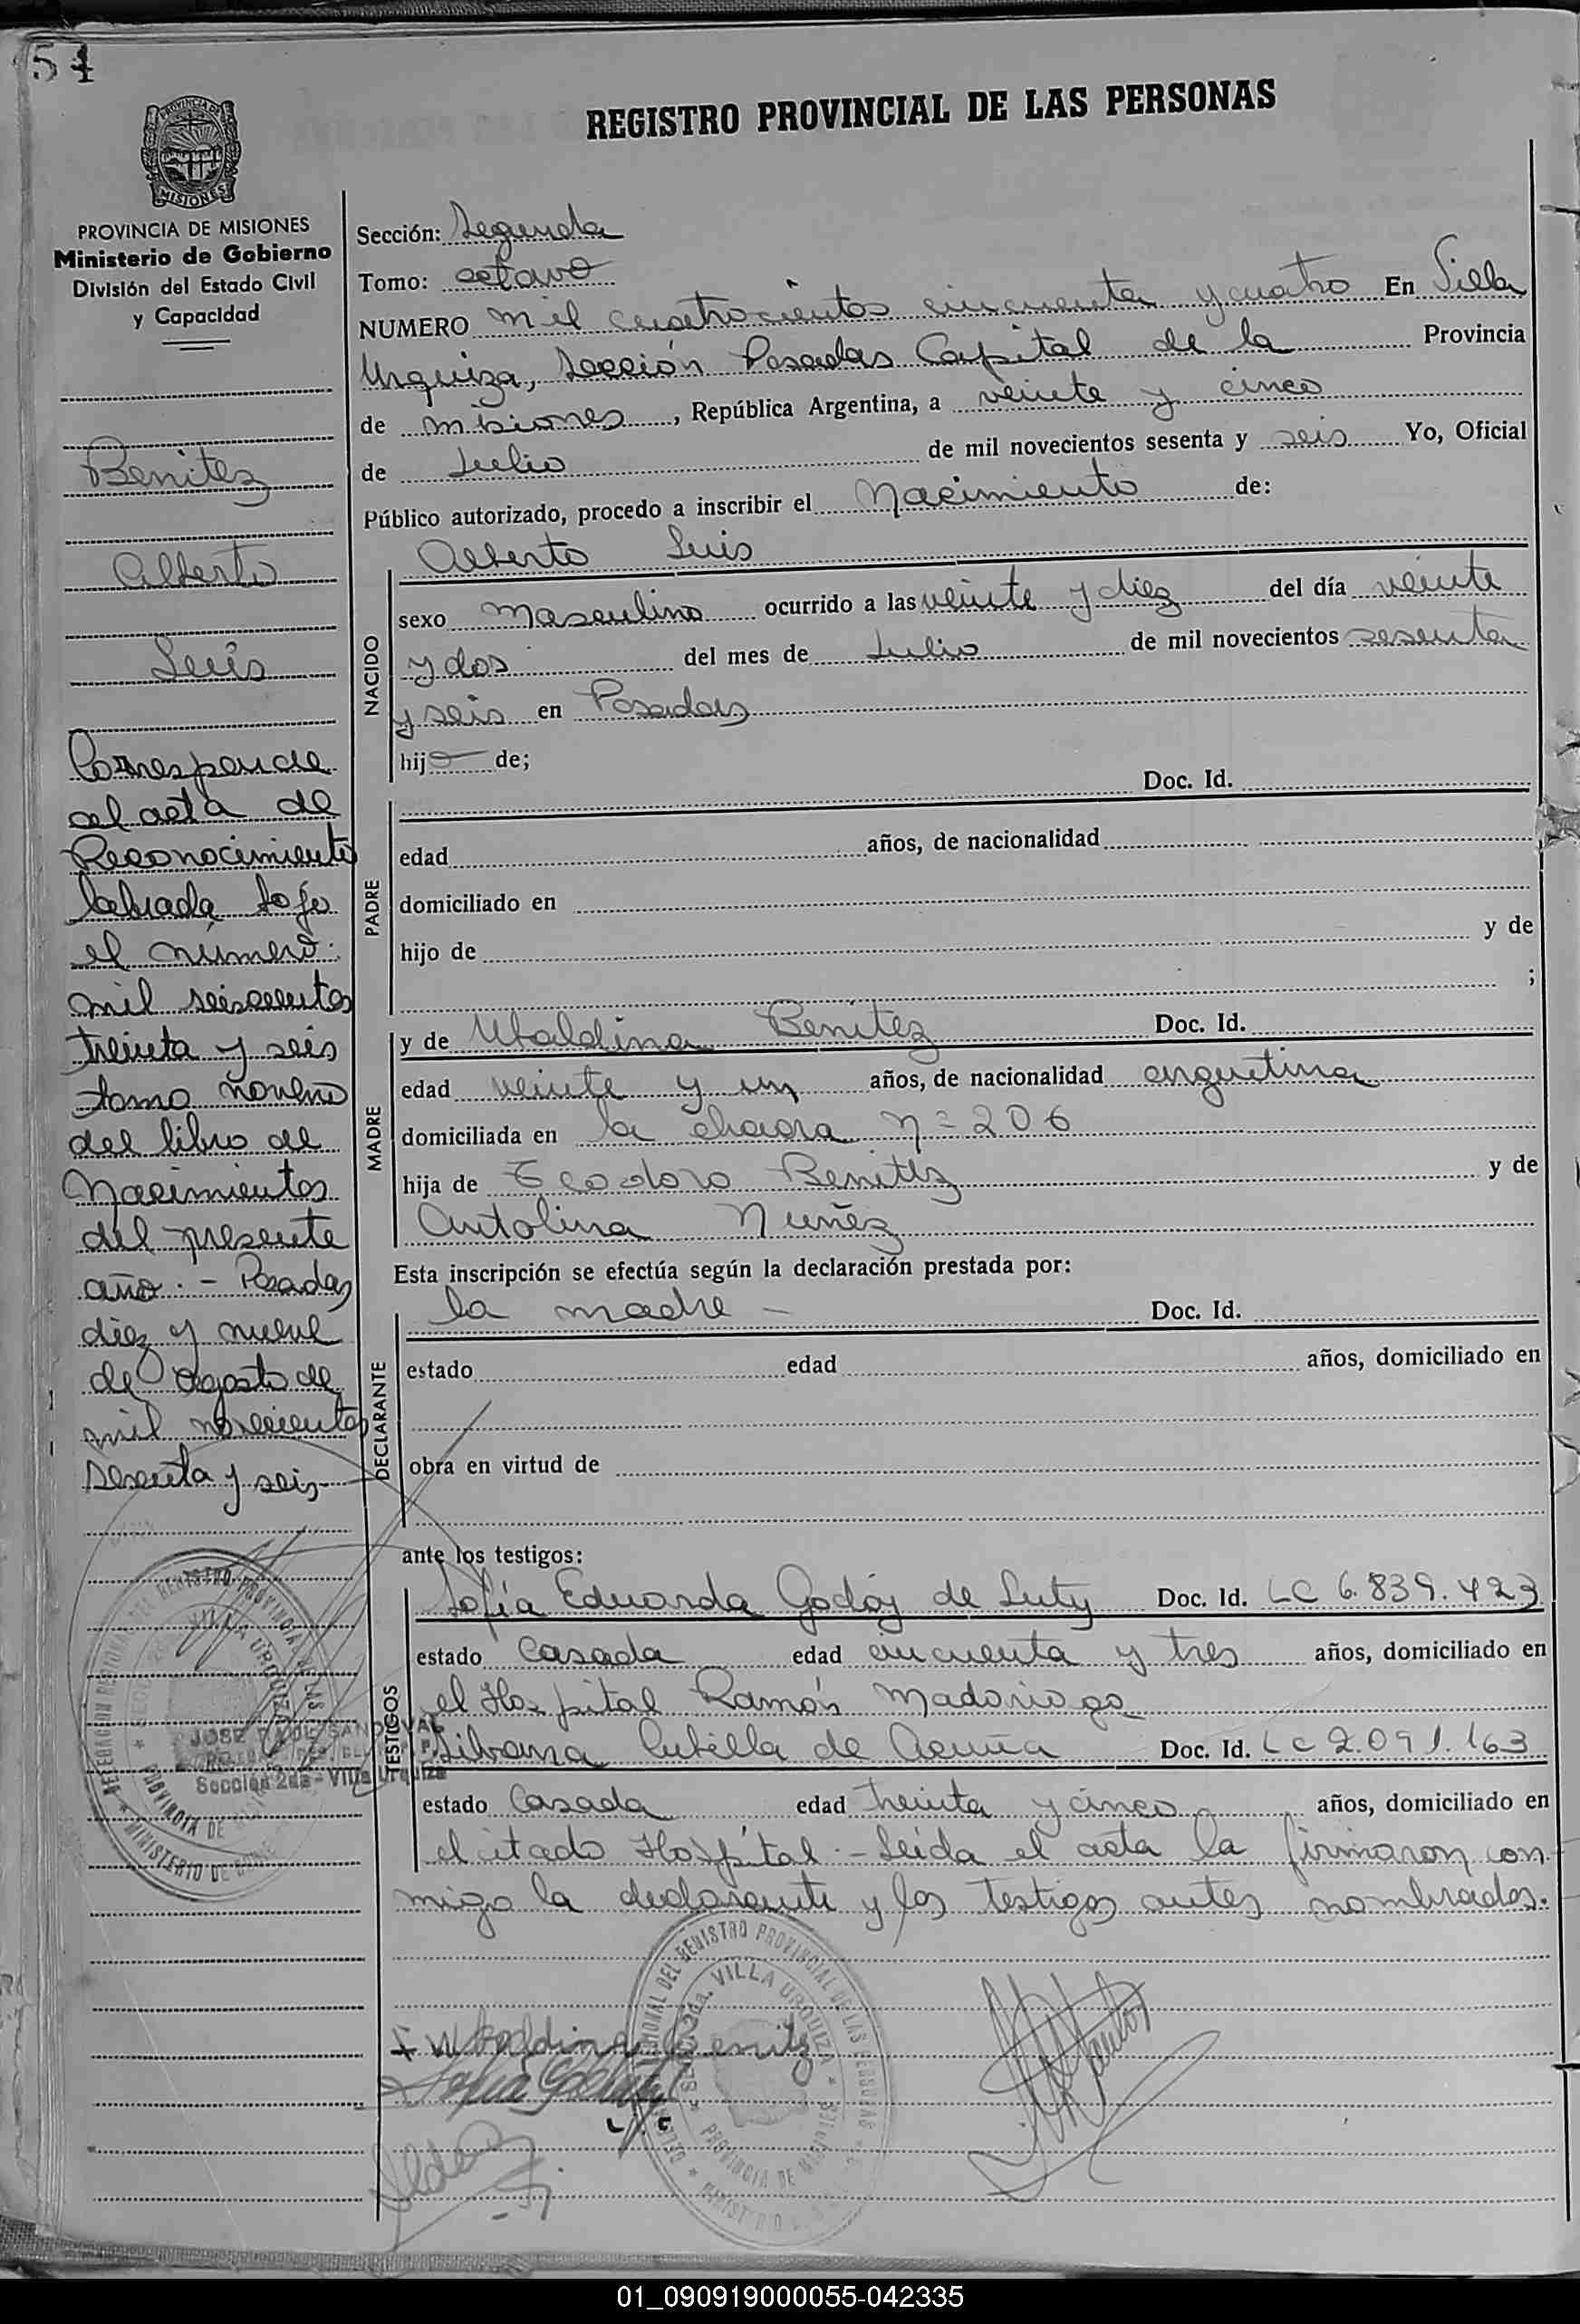 54
REGISTRO PROVINCIAL DE LAS PERSONAS
PROVINCIA DE MISIONES
MISIONES
PROVINCIA DE MISIONES
Ministerio de Gobierno
División del Estado Civil
y Capacidad
Benitez
Alberto
Luis
Corresponde
al acta de
Reconocimiento
labrada bajo
el número:
mil seiscientos
treinta y seis
tomo noveno
del libro de
Nacimientos
del presente
año.- Posadas
diez y nueve
de agosto de
mil novecientos
sesenta y seis
Sección: Segunda
Tomo: octavo
NUMERO mil cuatrocientos cincuenta y cuatro En Villa
Urquiza, Sección Posadas Capital de la Provincia
de misiones, República Argentina, a veinte y cinco
de Julio de mil novecientos sesenta y seis Yo, Oficial
Público autorizado, procedo a inscribir el Nacimiento de:
Alberto Luis
NACIDO
sexo masculino ocurrido a las veinte y diez del día veinte
y dos del mes de Julio de mil novecientos sesenta
y seis en Posadas
hijo de;
Doc. Id.
PADRE
edad años, de nacionalidad
domiciliado en
hijo de y de
;
MADRE
y de Ubaldina Benitez Doc. Id.
edad veinte y un años, de nacionalidad argentina
domiciliada en la chacra Nº 206
hija de Teodoro Benitez y de
Antolina Nuñez
Esta inscripción se efectúa según la declaración prestada por:
la madre - Doc. Id.
DECLARANTE
estado edad años, domiciliado en
obra en virtud de
ante los testigos:
TESTIGOS
Sofía Eduarda Godoy de Luty Doc. Id. LC 6.839.423
estado Casada edad cincuenta y tres años, domiciliado en
el Hospital Ramón Madariaga
Silvana Cubilla de Acuña Doc. Id. LC 2.091.163
estado Casada edad treinta y cinco años, domiciliado en
el citado Hospital.- Leida el acta la firmaron con-
migo la declarante y los testigos antes nombrados.
JOSE RAUL SANDOVAL
Sección 2da - Villa Urquiza
DELEGACION REGIONAL DEL REGISTRO PROVINCIAL DE LAS PERSONAS
VILLA URQUIZA
PROVINCIA DE
MINISTERIO DE
Ubaldina Benitez
REGIONAL DEL REGISTRO PROVINCIAL DE LAS PERSONAS
2da. VILLA URQUIZA
PROVINCIA DE MISIONES
MINISTERIO
01_090919000055-042335